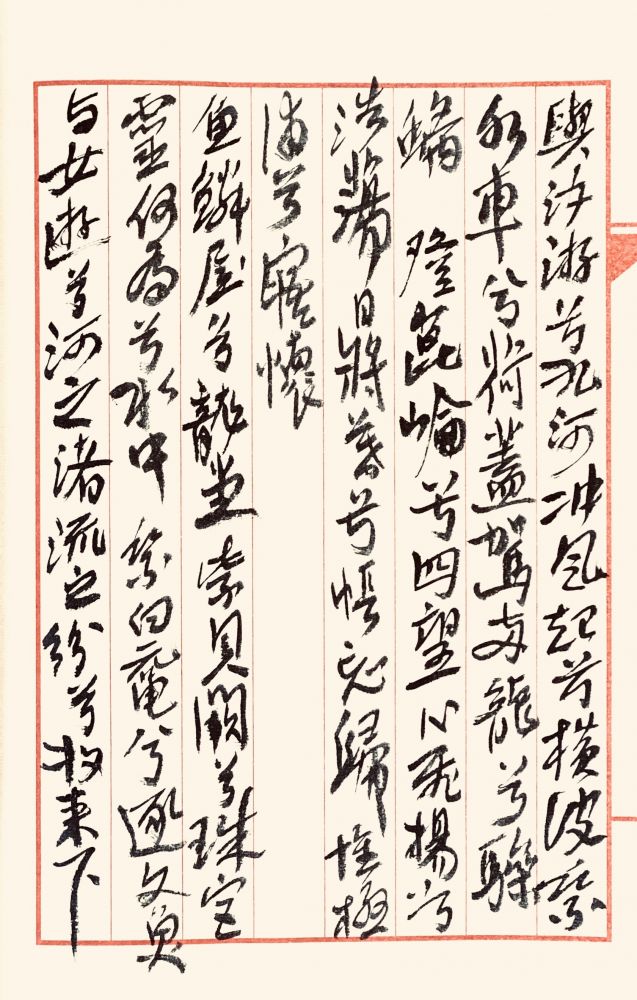 與汝游兮九河冲風起兮橫波乘
水車兮荷蓋駕兩龍兮驂
螭 登崑崘兮四望心飛揚兮
浩蕩日將暮兮悵忘歸惟極
浦兮寤懷
魚鱗屋兮龍堂紫貝闕兮珠宮
靈何為兮水中 乘白黿兮逐文魚
与女遊兮河之渚流之紛兮将来下